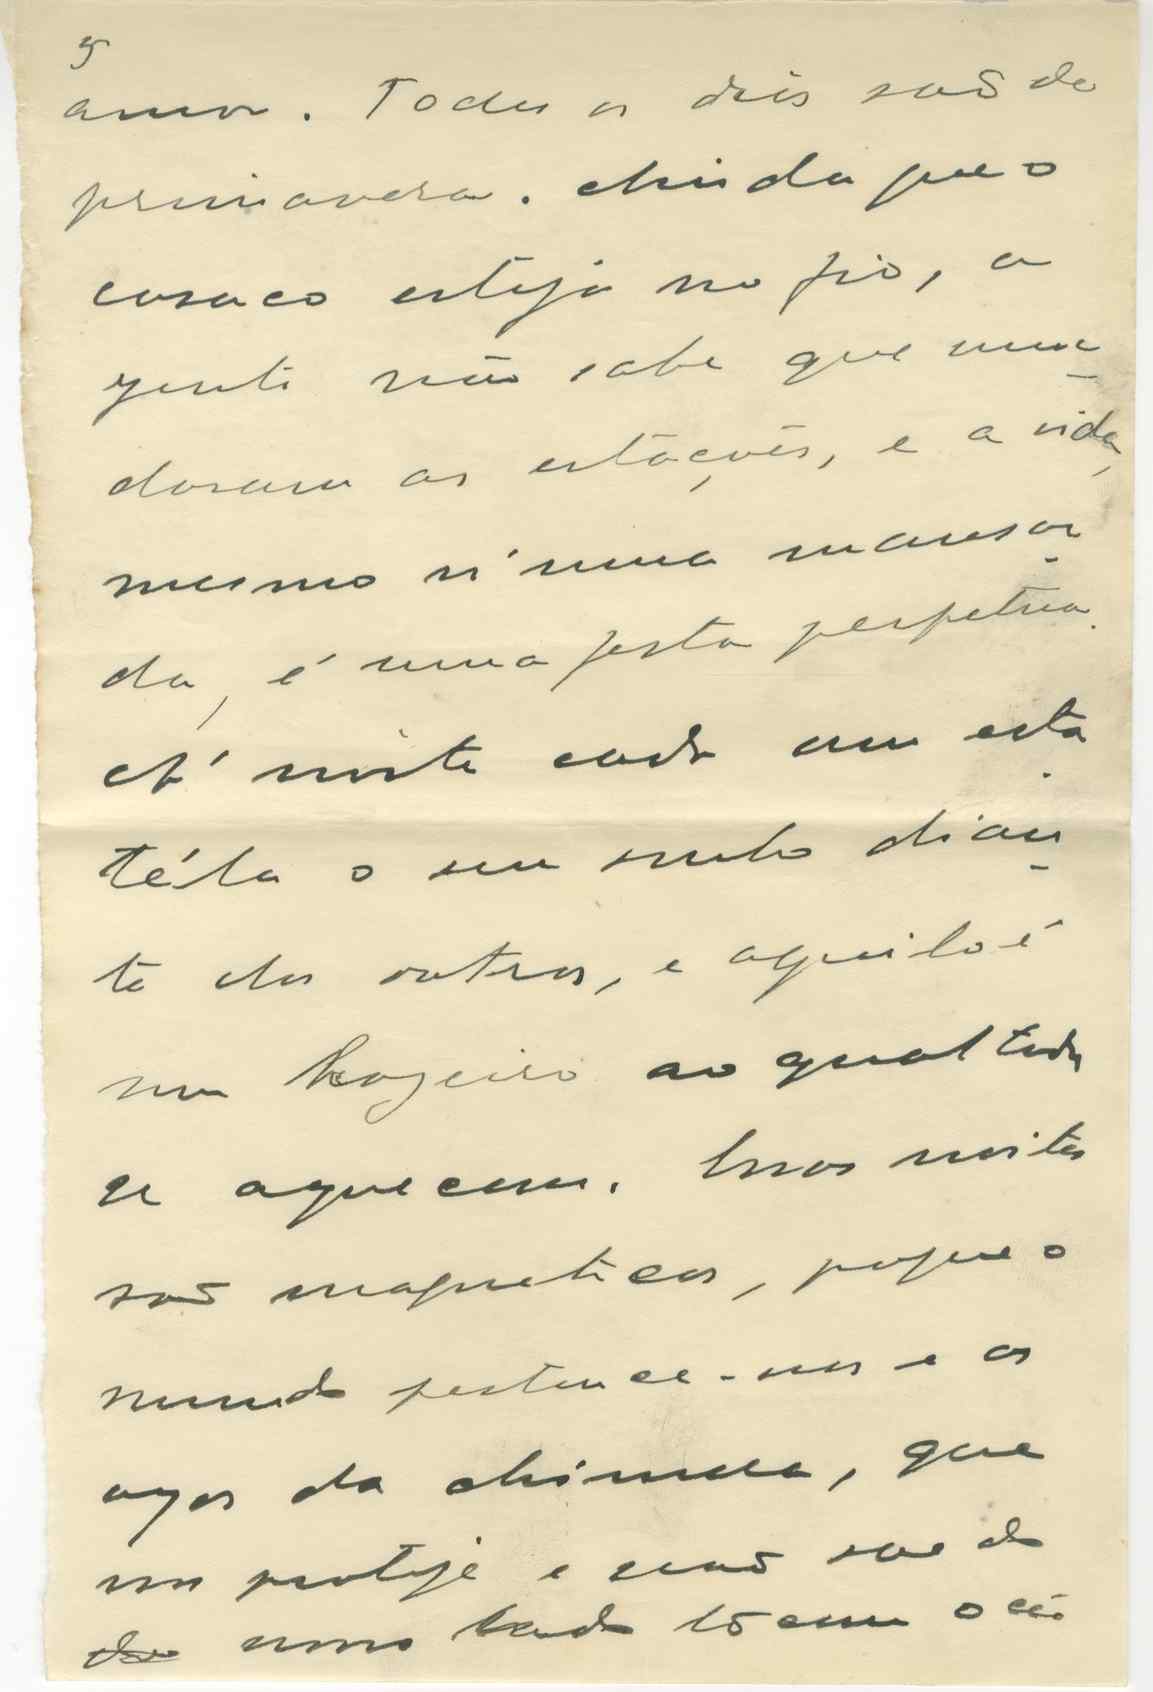 5
amor. Todos os dias são de
primavera. Ainda que o
casaco esteja no fio, a
gente não sabe que mu-
daram as estações, e a vida,
mesmo n'uma mansar-
da, é uma festa perpetua.
Á noite cada um esta-
téla o seu sonho dian-
te dos outros, e aquilo é
um brazeiro ao qual todos
se aquecem. Essas noites
são magneticas, porque o
mundo pertence-nos e as
azas da chimera, que
nos proteje e não sae do
do nosso lado tocam o céo